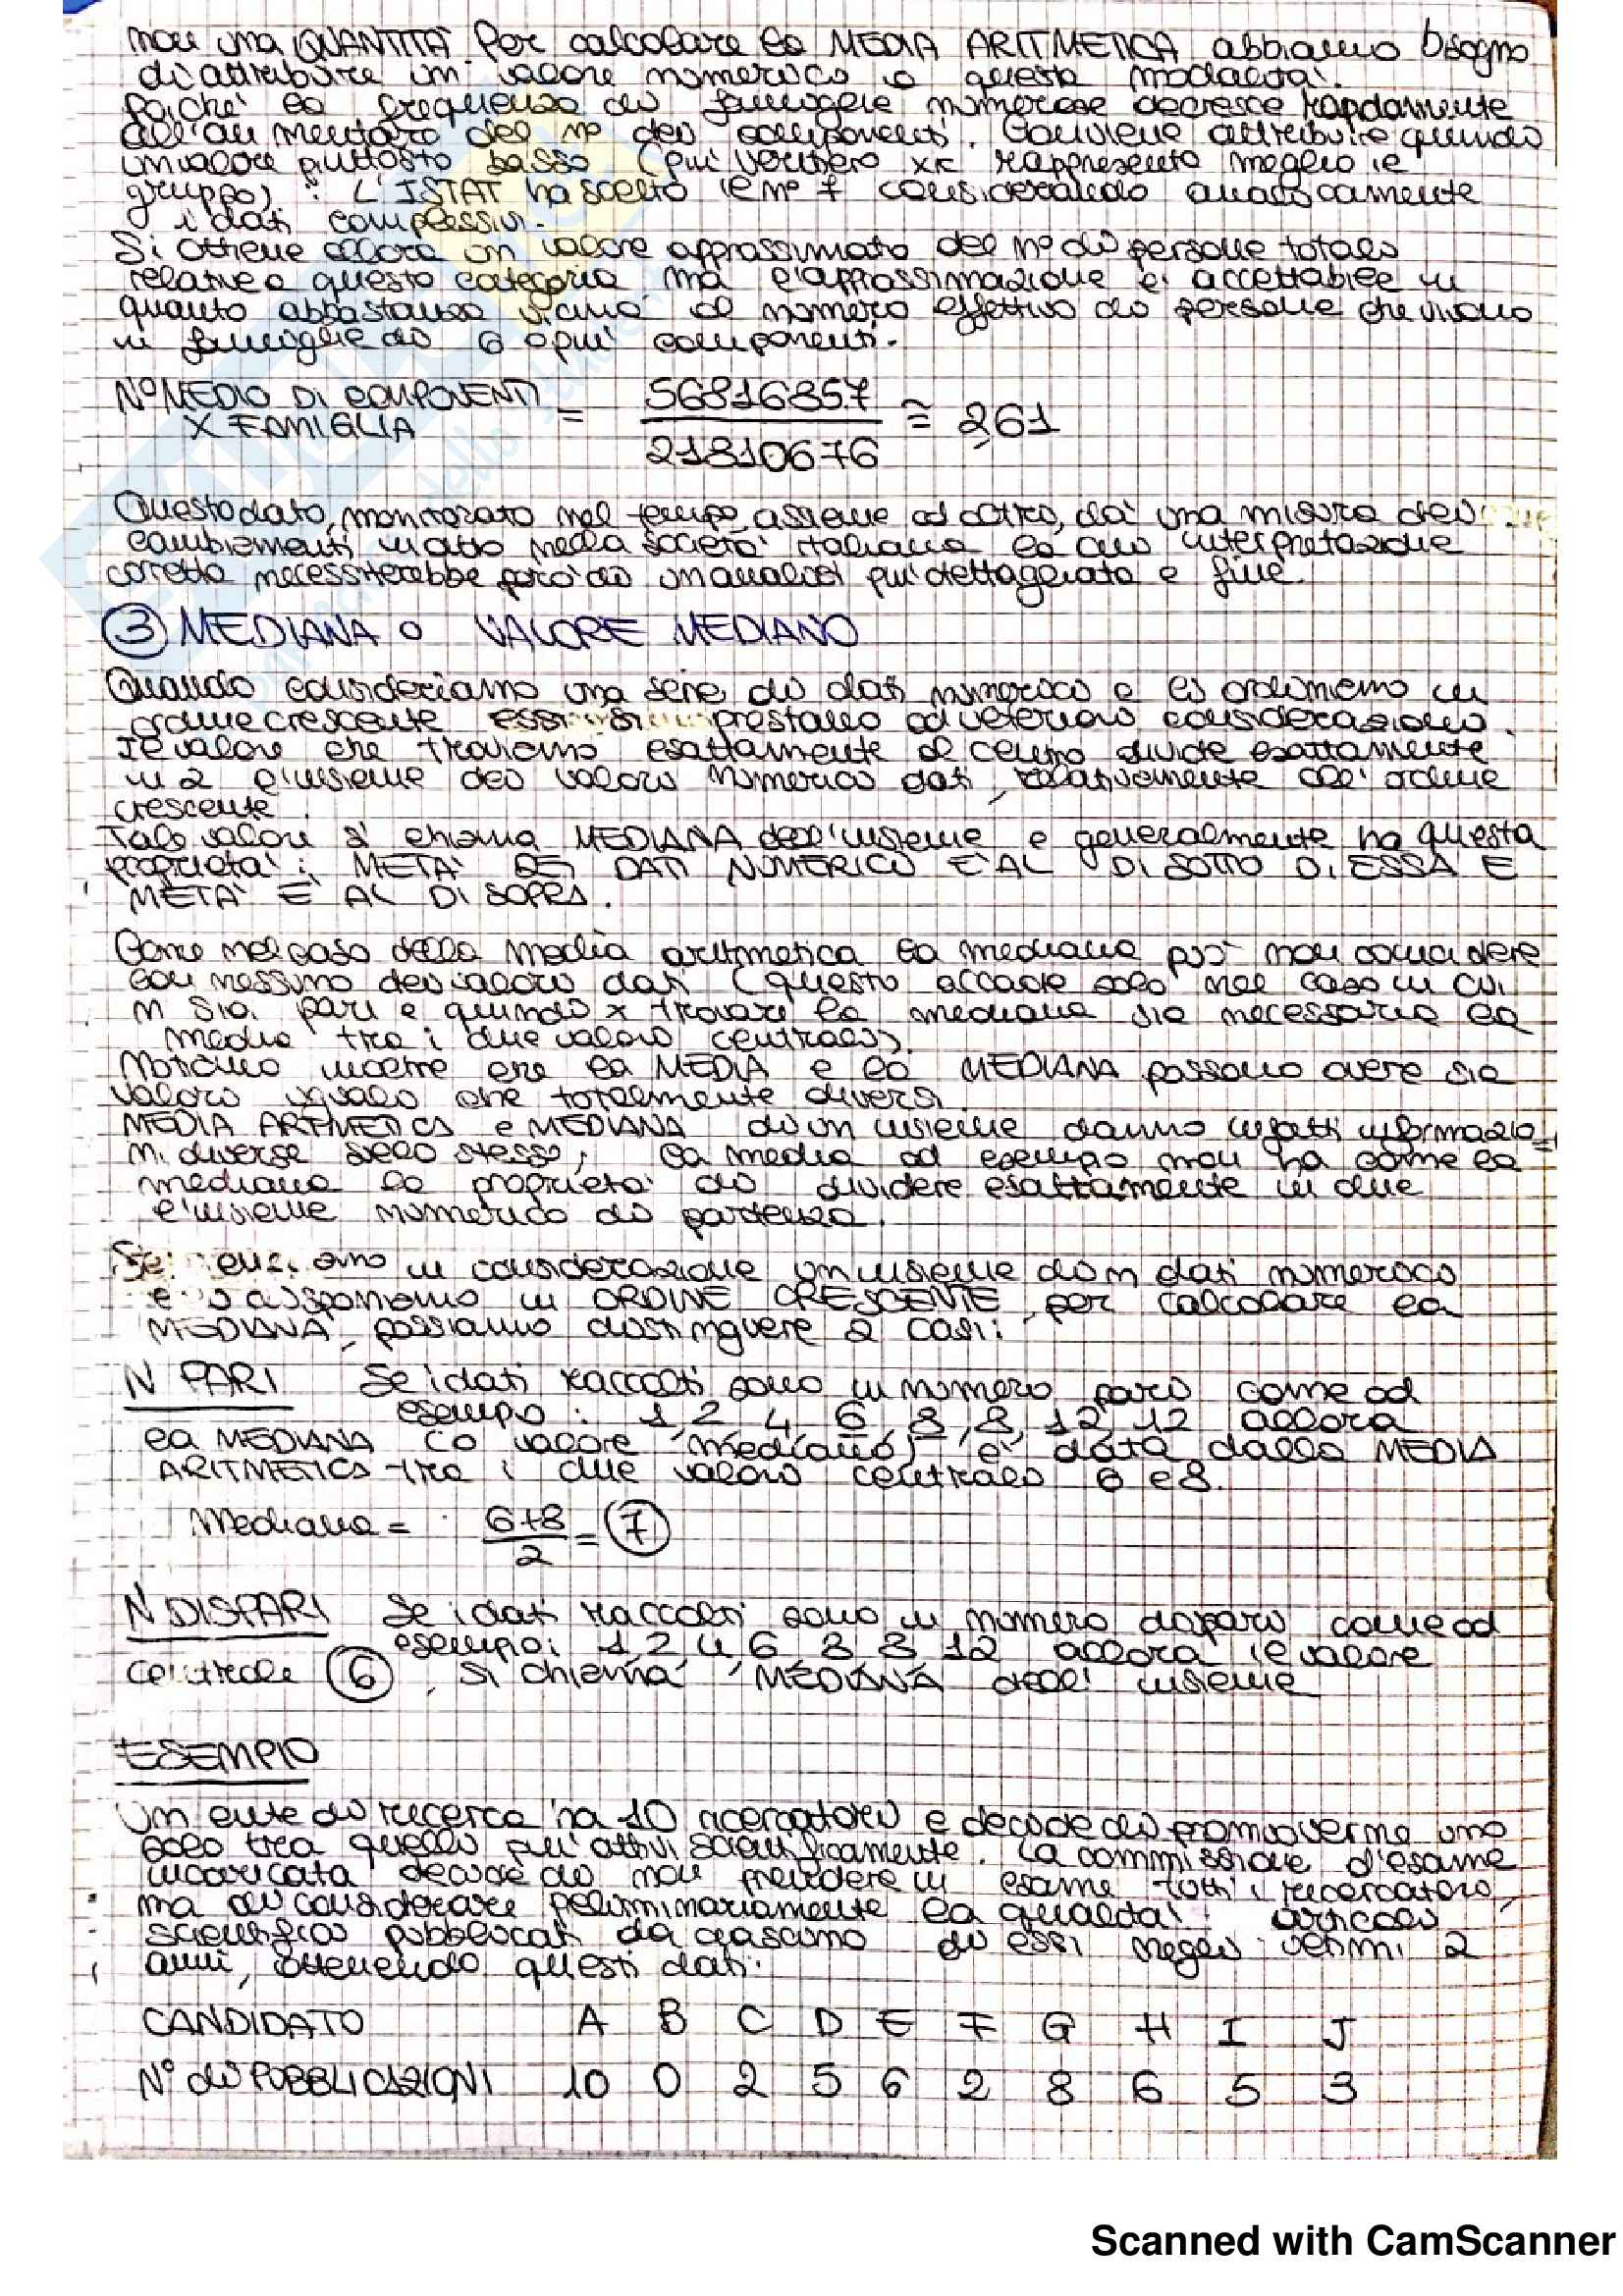 non una QUANTITÀ. Per calcolare la MEDIA ARITMETICA abbiamo bisogno
di attribuire un valore numerico a questa modalità.
Poiché la frequenza di famiglie numerose decresce rapidamente
all'aumentare del n° dei componenti. Conviene attribuire quindi
un valore piuttosto basso (più veritiero xk rappresenta meglio il
gruppo): L'ISTAT ha scelto il n° 7 considerando
i dati complessivi.
Si ottiene allora un valore approssimato del n° di persone totali
relative a questa categoria ma l'approssimazione è accettabile in
quanto abbastanza vicina al numero effettivo di persone che vivono
in famiglie di 6 o più componenti.
N° MEDIO DI COMPONENTI X FAMIGLIA = 56816857 / 21810676 ≅ 2,61
Questo dato, monitorato nel tempo, assieme ad altri, dà una misura dei
cambiamenti in atto nella società italiana la cui interpretazione
corretta necessiterebbe però di un'analisi più dettagliata e fine.
3 MEDIANA o VALORE MEDIANO
Quando consideriamo una serie di dati numerici e li ordiniamo in
ordine crescente essi si prestano ad ulteriori considerazioni.
Il valore che troviamo esattamente al centro divide esattamente
in 2 l'insieme dei valori numerici dati, relativamente all'ordine
crescente.
Tale valore si chiama MEDIANA dell'insieme e generalmente ha questa
proprietà: METÀ DEI DATI NUMERICI È AL DI SOTTO DI ESSA E
METÀ È AL DI SOPRA.
Come nel caso della media aritmetica la mediana può non coincidere
con nessuno dei valori dati (questo accade solo nel caso in cui
n sia pari e quindi x trovare la mediana sia necessaria la
media tra i due valori centrali).
Notiamo inoltre che la MEDIA e la MEDIANA possono avere sia
valori uguali che totalmente diversi.
MEDIA ARITMETICA e MEDIANA di un insieme danno infatti informazio=
ni diverse sello stesso; la media ad esempio non ha come la
mediana la proprietà di dividere esattamente in due
l'insieme numerico di partenza.
Se in considerazione un insieme di n dati numerici
e li disponiamo in ORDINE CRESCENTE, per calcolare la
MEDIANA, possiamo distinguere 2 casi:
N PARI Se i dati raccolti sono in numero pari come ad
esempio: 1, 2, 4, 6, 8, 8, 12, 12 allora
la MEDIANA (o valore mediano) è data dalla MEDIA
ARITMETICA tra i due valori centrali 6 e 8.
Mediana = 6+8 / 2 = 7
N DISPARI Se i dati raccolti sono in numero dispari come ad
esempio: 1, 2, 4, 6, 8, 8, 12 allora il valore
centrale 6, si chiama MEDIANA dell'insieme
ESEMPIO
Un ente di ricerca ha 10 ricercatori e decide di promuoverne uno
solo tra quelli più attivi scientificamente. La commissione d'esame
incaricata decide di non prendere in esame tutti i ricercatori,
ma di considerare preliminarmente la qualità articoli
scientifici pubblicati da ciascuno di essi negli ultimi 2
anni, ottenendo questi dati:
CANDIDATO A B C D E F G H I J
N° di PUBBLICAZIONI 10 0 2 5 6 2 8 6 5 3
Scanned with CamScanner